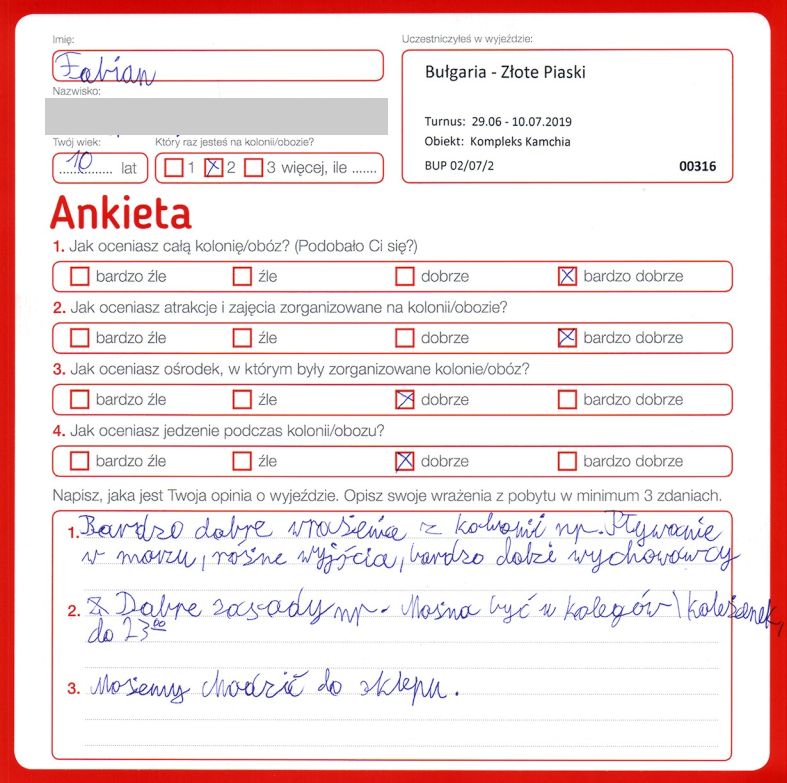 Imię:
Uczestniczyłeś w wyjeździe:
Fabian
Bułgaria - Złote Piaski
Nazwisko:
Turnus: 29.06 - 10.07.2019
Twój wiek:
Który raz jesteś na kolonii/obozie?
Obiekt: Kompleks Kamchia
10 lat
1 2 3 więcej, ile .......
BUP 02/07/2
00316
Ankieta
1. Jak oceniasz całą kolonię/obóz? (Podobało Ci się?)
bardzo źle źle dobrze bardzo dobrze
2. Jak oceniasz atrakcje i zajęcia zorganizowane na kolonii/obozie?
bardzo źle źle dobrze bardzo dobrze
3. Jak oceniasz ośrodek, w którym były zorganizowane kolonie/obóz?
bardzo źle źle dobrze bardzo dobrze
4. Jak oceniasz jedzenie podczas kolonii/obozu?
bardzo źle źle dobrze bardzo dobrze
Napisz, jaka jest Twoja opinia o wyjeździe. Opisz swoje wrażenia z pobytu w minimum 3 zdaniach.
1. Bardzo dobre wrażenia z kolonii np. Pływanie
w morzu, rośne wyjścia, bardzo dobzi wychowawcy
2. Dobre zasady np. Mosna być u kolegów \ koleżanek,
do 23⁰⁰
3. Mosemy chodzić do sklepu.